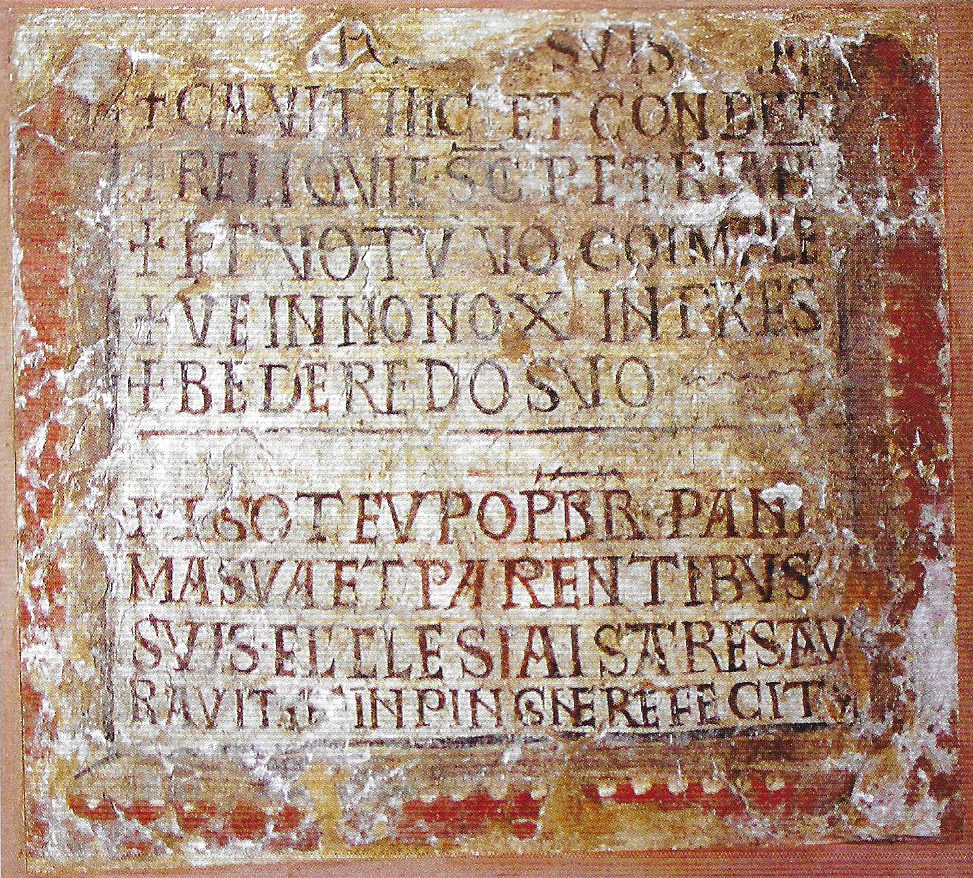 SVIS
+ CAVIT HIC ET CONDET
+ RELIQVIE · SC PETRI
+ ET VOTV VO COIMPLE
+ VE IN HONO · X · IN TRES
+ BEDEREDO SVO
TEVPO PBR · PANI
MA SVA ET PARENTIBVS
SVIS · ELCLESIAI STA RESAV
RAVIT · IN PINGNERE FECIT